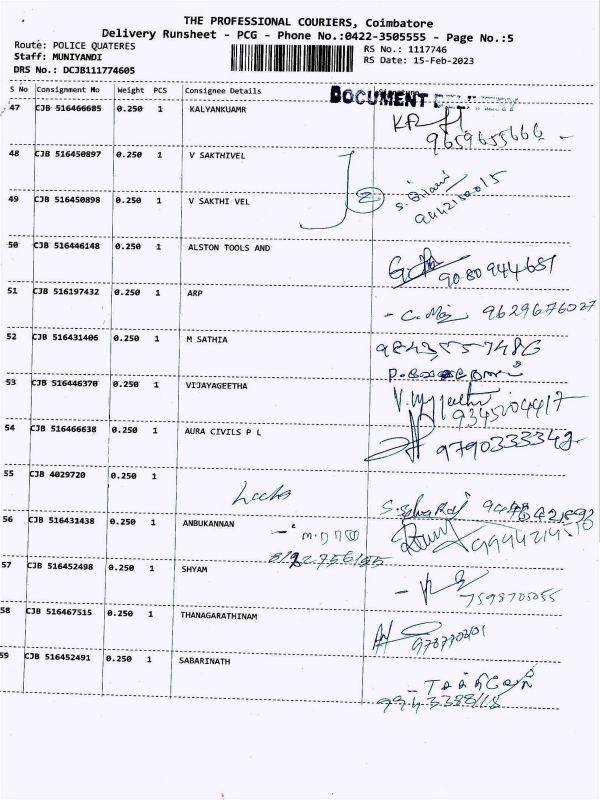 THE PROFESSIONAL COURIERS, Coimbatore
Delivery Runsheet - PCG - Phone No.:0422-3505555 - Page No.:5
Route: POLICE QUATERES
Staff: MUNIYANDI
DRS No.: DCJB111774605
RS No.: 1117746
RS Date: 15-Feb-2023
S No Consignment No Weight PCS Consignee Details
DOCUMENT DELIVERY
47 CJB 516466685 0.250 1 KALYANKUAMR
9659655666
48 CJB 516450897 0.250 1 V SAKTHIVEL
49 CJB 516450898 0.250 1 V SAKTHI VEL
50 CJB 516446148 0.250 1 ALSTON TOOLS AND
9080944651
51 CJB 516197432 0.250 1 ARP
9629676027
52 CJB 516431406 0.250 1 M SATHIA
53 CJB 516446370 0.250 1 VIJAYAGEETHA
9345204417
54 CJB 516466638 0.250 1 AURA CIVILS P L
9790333342
55 CJB 4029720 0.250 1
56 CJB 516431438 0.250 1 ANBUKANNAN
57 CJB 516452498 0.250 1 SHYAM
7598705055
58 CJB 516467515 0.250 1 THANAGARATHINAM
59 CJB 516452491 0.250 1 SABARINATH